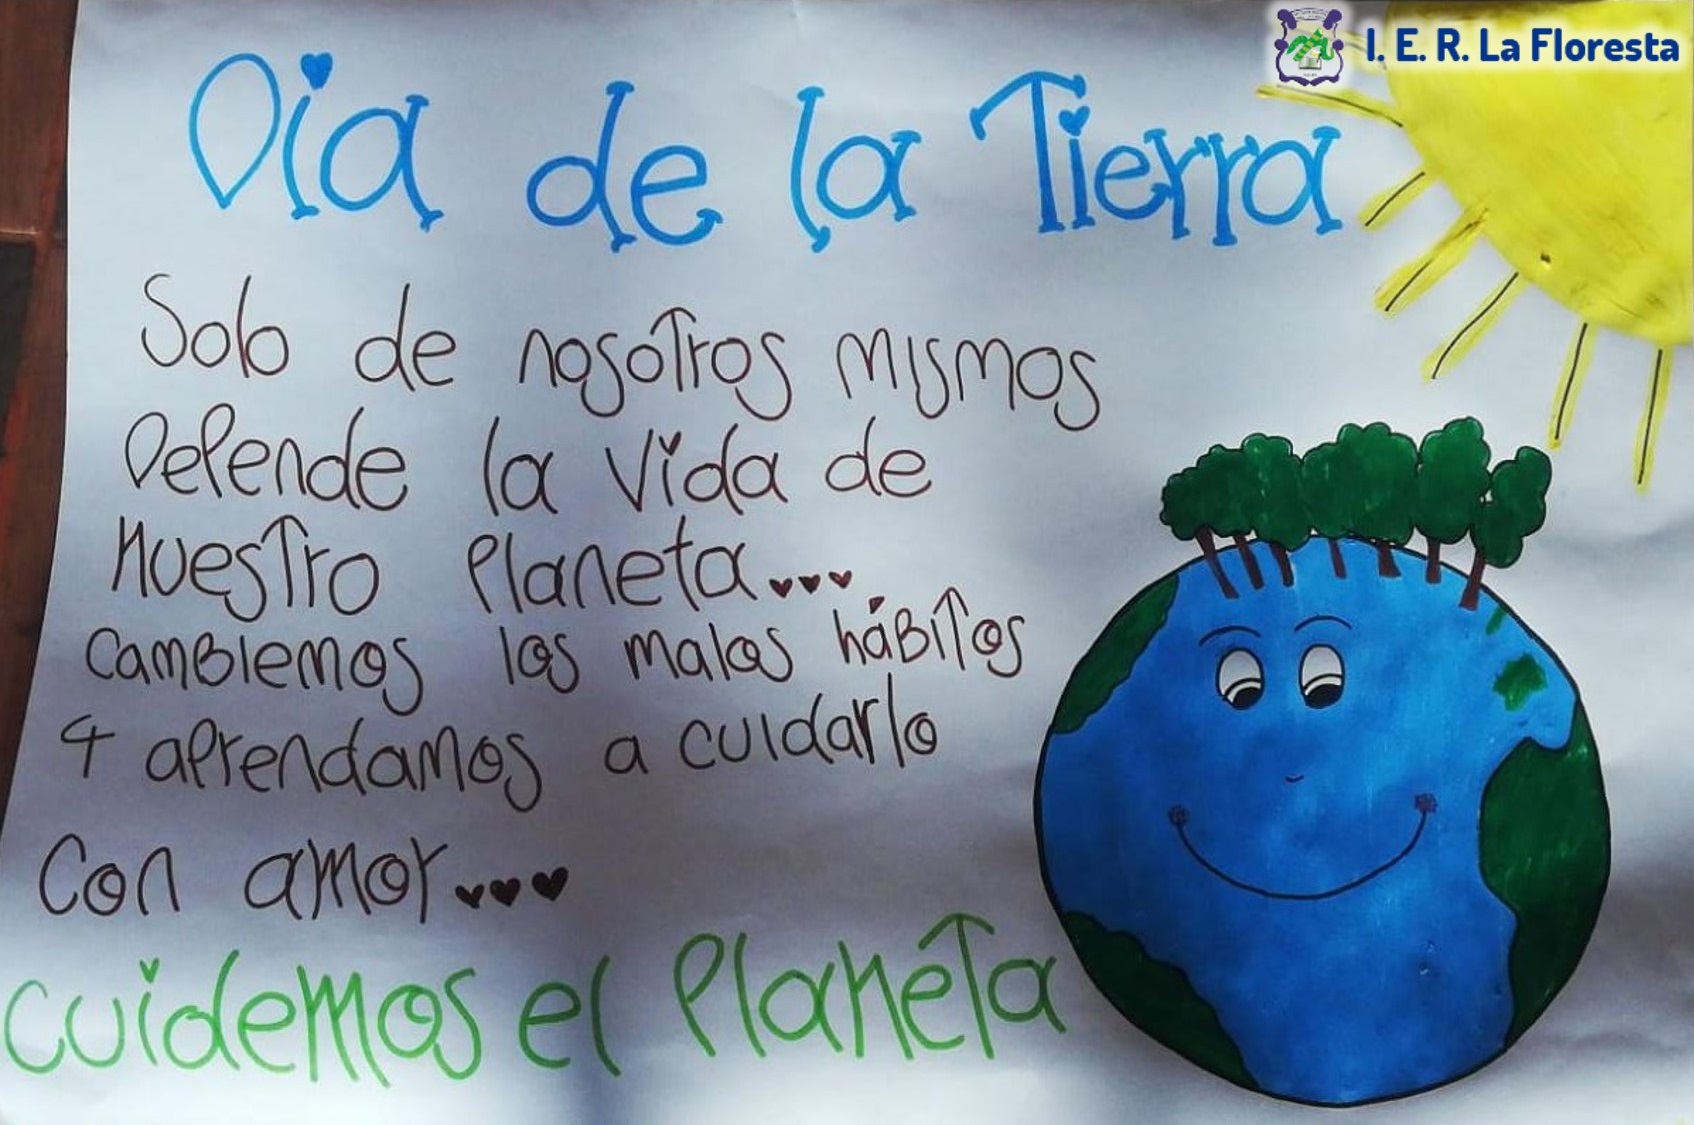 I. E. R. La Floresta
Dia de la Tierra
Solo de nosotros mismos
Depende la vida de
Nuestro Planeta...
cambiemos los malos hábitos
y aprendamos a cuidarlo
Con amor...
cuidemos el Planeta